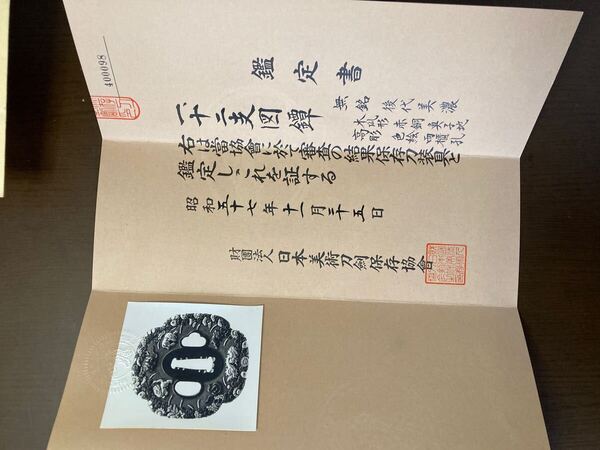 400098
鑑定書
一、十二支図鐔
無銘 後代美濃
木瓜形 赤銅魚子地
高彫 色絵 両櫃孔
右は當協會に於て審査の結果保存刀装具と
鑑定しこれを証する
昭和五十七年十一月二十五日
財團法人 日本美術刀劍保存協會